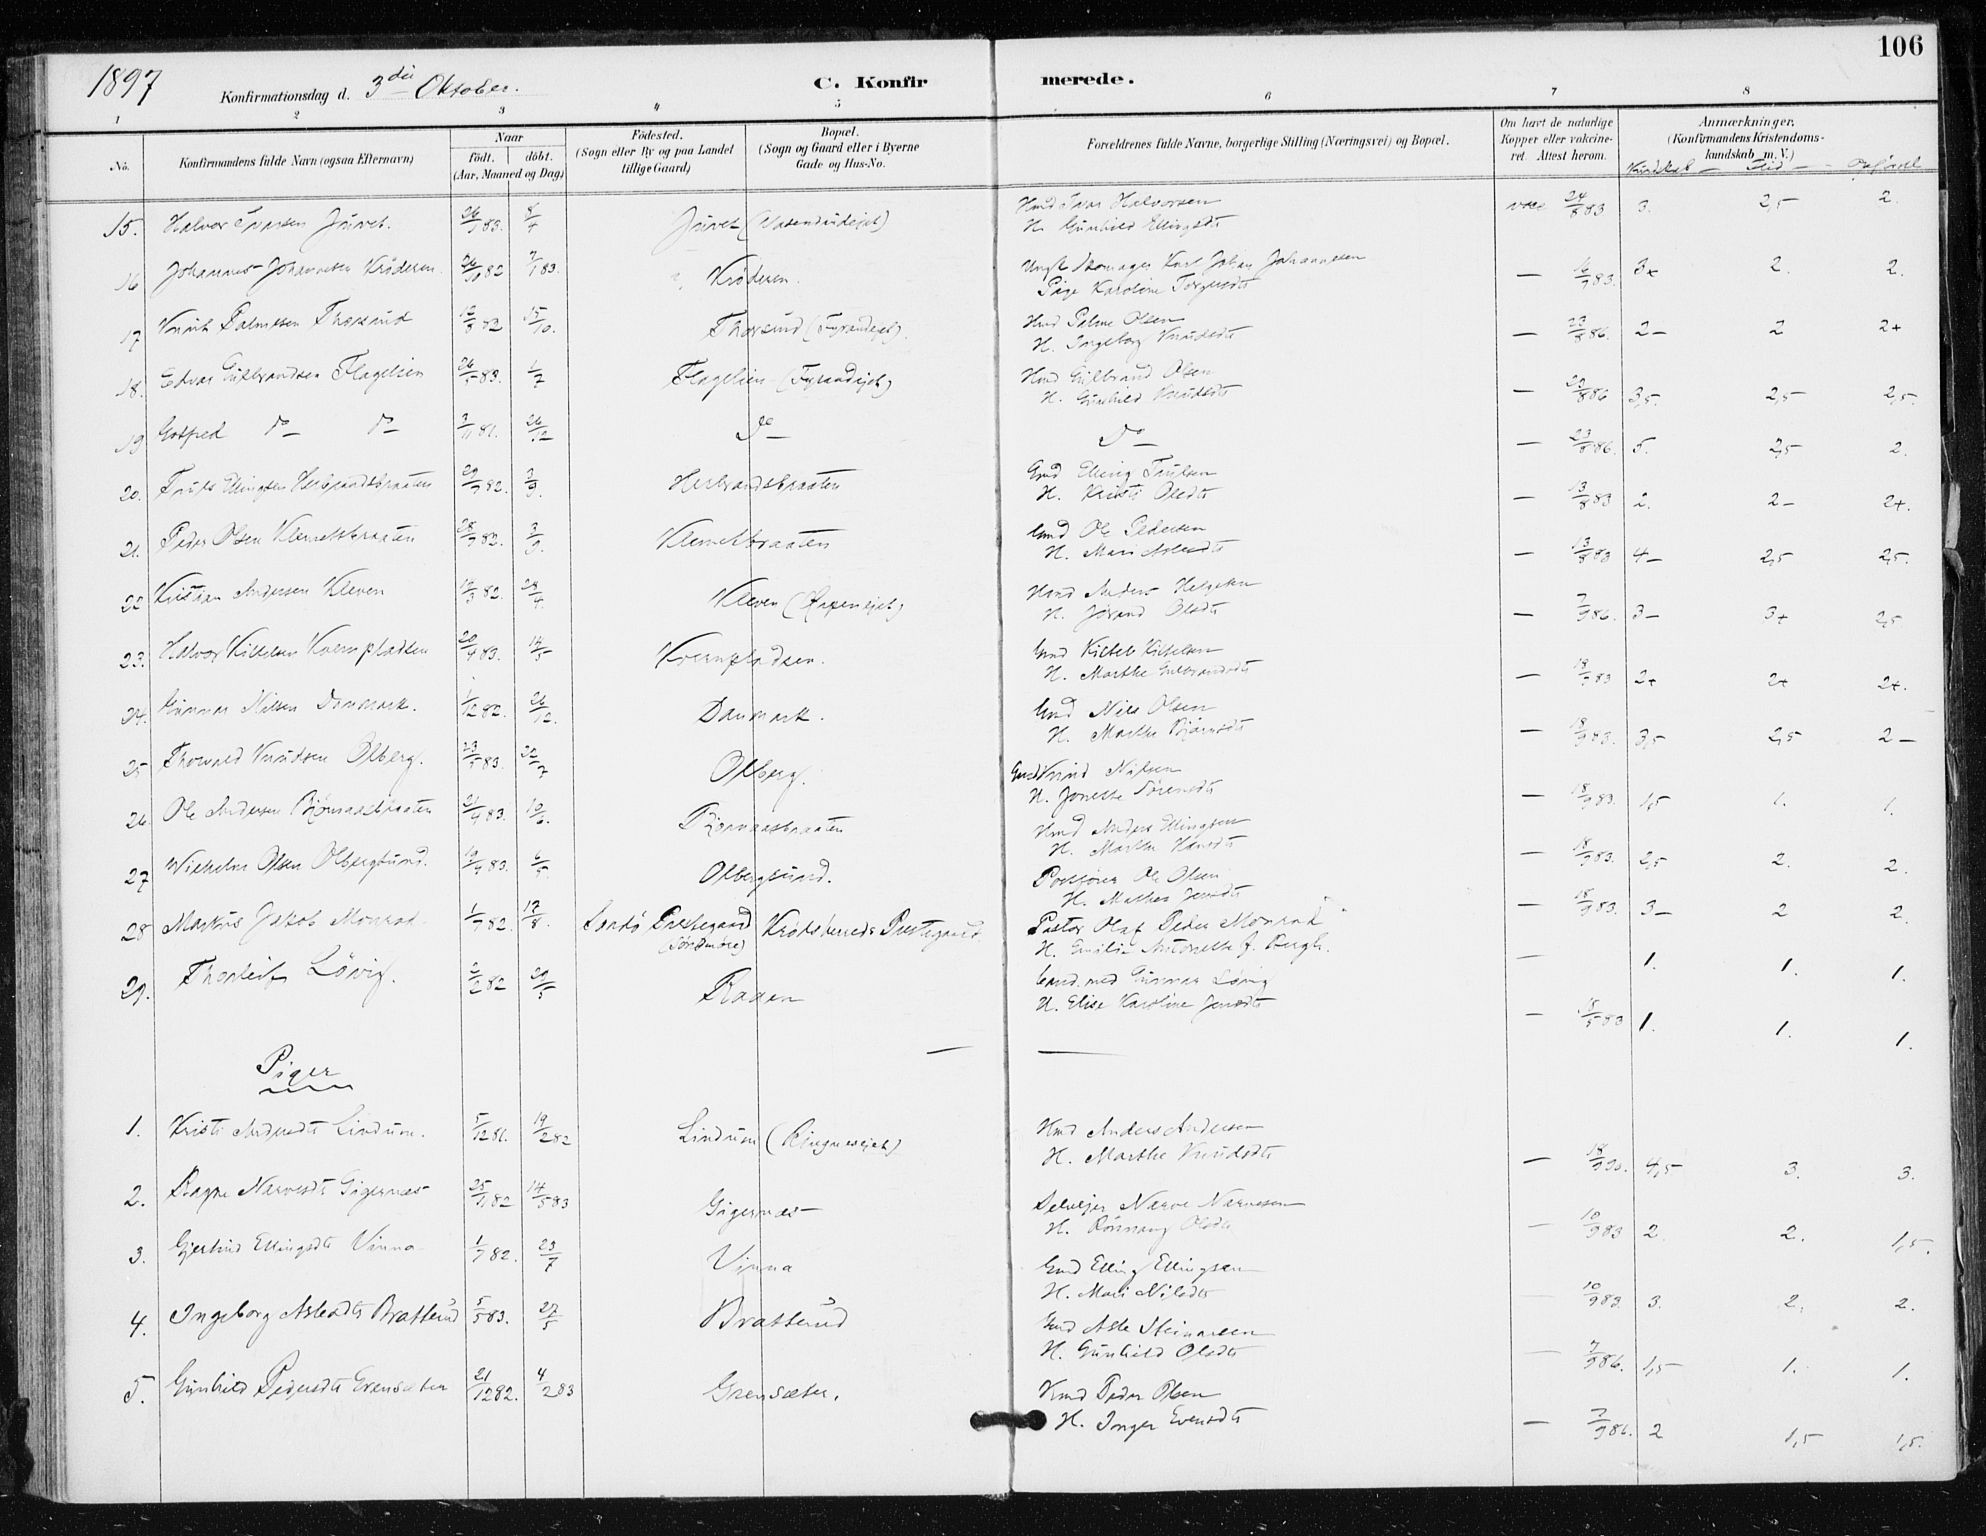 106
1897
Konfirmationsdag d. 3die Oktober.
C. Konfirmerede.
1 2 3 4 5 6 7 8
No.
Konfirmandens fulde Navn (ogsaa Efternavn)
Naar
født. døbt.
(Aar, Maaned og Dag)
Fødested.
(Sogn eller By og paa Landet tillige Gaard)
Bopæl.
(Sogn og Gaard eller i Byerne Gade og Hus-No.
Forældrenes fulde Navne, borgerlige Stilling (Næringsvei) og Bopæl.
Om havt de naturlige Kopper eller vakcineret. Attest herom.
Anmærkninger.
(Konfirmandens Kristendomskundskab m. V.)
Kundskab — Flid — Opførsel
15. Halvor Ivarsen Juvet. 26/1 83. 8/4 Juvet Hmd Ivar Halvorsen vacc 24/8 83 3. 2,5 2.
H. Gunhild Ellingsdt
16 Johannes Johannesen Krøderen 26/11 82 7/1 83. Krøderen. Ungk. Skomager Karl Johan Johannesen — 16/9 83. 3+ 2. 2.
Pige Karoline Torgersdt
17 Knut Palmesen Thorsrud 12/8 82 15/10. Thorsrud Hmd Palme Olsen — 23/8 86. 2— 2 2+
H. Ingeborg Knudsdt
18. Edvar Gulbrandsen Flagelien 26/5 83. 1/7 Flagelien Hmd Gulbrand Olsen — 23/8 86 3,5. 2,5 2,5.
H. Gunhild Knudsdt
19 Gotfred do do 2/11 81. 26/12 do do — 23/8 86. 5. 2,5 2.
20. Truls Ellingsen Herbrandsbraaten 29/7 82. 3/9. Herbrandsbraaten Gmd Elling Trulsen — 13/8 83 2. 2— 2+.
H. Kristi Olsdt
21. Peder Olsen Klemetsbraaten 28/7 82. 3/9. Klemetsbraaten Gmd Ole Pedersen — 13/8 83 4— 2,5 2,5.
H. Mari Aslesdt
22 Kristian Andersen Kleven 12/3 82. 28/4. Kleven Hmd Anders Helgesen — 7/9 86. 3— 3+ 2,5
H. Jørand Olsdt
23. Halvor Kittelsen Kvernpladsen 20/4 83. 14/5 Kvernpladsen. Gmd Kittel Kittelsen — 18/9 83 2+ 2+ 2+.
H. Marthe Gulbrandsdt
24. Gunnar Nilsen Danmark. 1/12 82. 26/12. Danmark. Gmd Nils Olsen — 18/9 83. 3,5 2,5 2—
H. Marthe Bjørnsdt
25 Thorvald Knudsen Olberg. 23/5 83. 22/7 Olberg. Gmd Knud Nilsen — 18/9 83. 1,5 1. 1.
H. Jonette Sørensdt
26. Ole Andersen Bjørnaasbraaten 21/4 83. 10/6. Bjørnaasbraaten Hmd Anders Ellingsen — 18/9 83. 2,5 2. 2.
H. Marthe Hansdt
27 Wilhelm Olsen Olbergsund. 19/4 83. 6/5 Olbergsund. Ole Olsen — 18/9 83. 3— 2 2.
H. Mathea Jensdt
28 Markus Jakob Monrad 1/7 82. 17/8. Sandø Prestegaard (Søndmøre) Krødsherreds Prestegaard. Pastor Olaf Peder Monrad — 1. 1. 1.
H. Emilie Antonette f. Bergh.
29. Thorleif Løvig. 2/2 82 29/5 Raaen Cand. med Gunnar Løvig — 18/5 83 1. 1. 1.
H. Elise Karoline Jensdt
Piger
1. Kristi Andersdt Lindum. 5/12 81. 19/2 82 Lindum (Ringneseiet) Hmd Anders Andersen — 18/9 90. 4,5 3. 3.
H. Marthe Knudsdt
2. Ragne Narvesdt Gigernæs 25/11 82 14/5 83 Gigernæs Selveier Narve Narvesen — 10/9 83 2. 2. 1,5.
H. Rønnaug Olsdt
3. Gjertrud Ellingsdt Vinna 1/7 82. 23/7 Vinna Gmd Elling Ellingsen — 10/9 83. 3. 2. 2.
H. Mari Nilsdt
4. Ingeborg Aslesdt Bratterud 5/5 83. 27/5 Bratterud Gmd Asle Steinarsen — 7/9 86. 1,5 1. 1.
H. Gunhild Olsdt
5. Gunhild Pedersdt Grensæter 21/12 82. 4/2 83 Grensæter. Hmd Peder Olsen — 7/9 86. 2 1,5 1,5.
H. Inger Evensdt